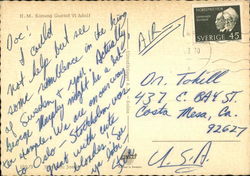 H. M. Konung Gustaf VI Adolf
Doc.
I could
not help but see
some resemblance in the king
of Sweden & you. Actually,
George Murphy might be a better
example. We are on our way
to Oslo - Stockholm was
great with cute
blondes.
AIR
SVERIGE 45
Dr. Tohill
437 E. BAY ST.
Costa Mesa, Ca.
92627
U.S.A.